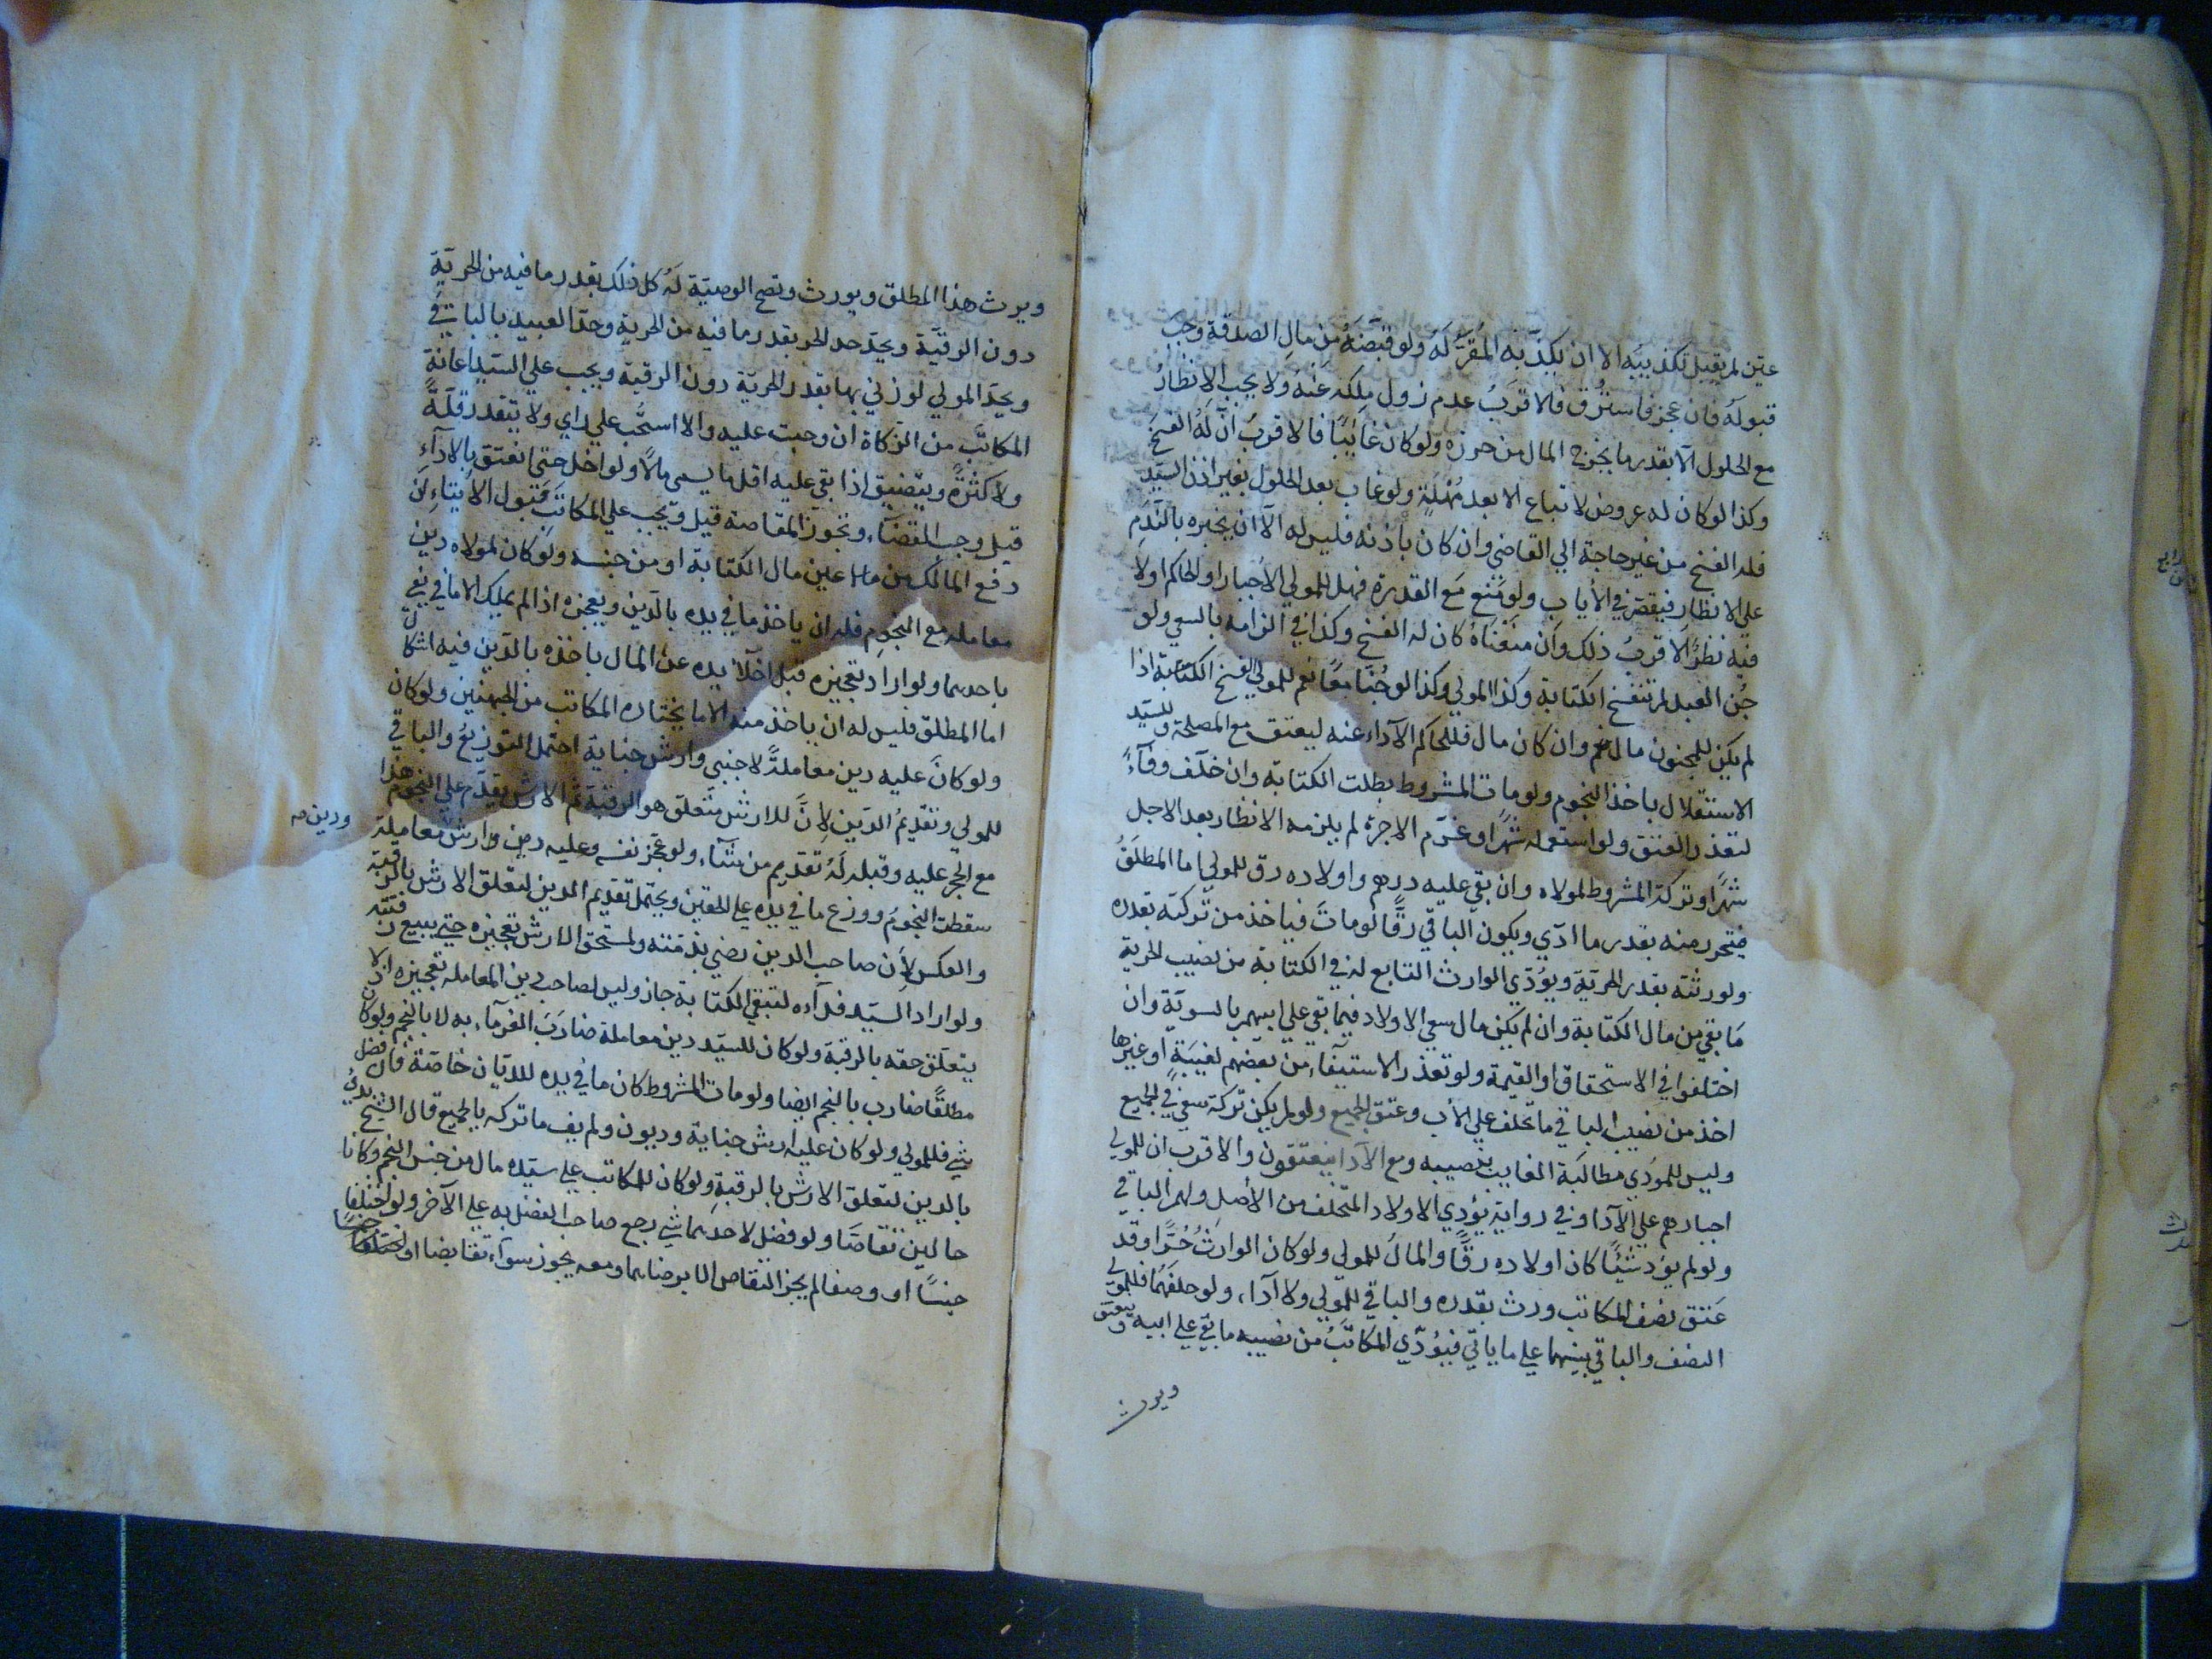 عين لم يقبل تكذيبه الا ان يكذبه المقر له ولو قبضه من مال الصدقة وجب
قبوله فان عجز فاسترق فالاقرب عدم زول ملكه عنه ولا يجب الانظار
مع الحلول الا بقدر ما يخرج المال من حرزه ولو كان غائبا فالاقرب ان له الفسخ
وكذا لو كان له عروض لا تباع الا بعد مهلة ولو غاب بعد الحلول بغير اذن السيد
فله الفسخ من غير حاجة الي القاضي وان كان باذنه فليس له الا ان يخبره بالندم
علي الانظار فيقصر في الاياب ولو منع مع القدرة فهل للمولي الاجبار او الحاكم اولا
فيه نظر الاقرب ذلك وان منعناه كان له الفسخ وكذا في الزامه بالسعي ولو
جن العبد لم تنفسخ الكتابة وكذا المولي وكذا لو جنا معا نعم للمولي فسخ الكتابة اذا
لم يكن للمجنون مال وان كان مال فللحاكم الآداء عنه ليعتق مع المصلحة وللسيد
الاستقلال باخذ النجوم ولو مات المشروط بطلت الكتابة وان خلف وفآء
لتعذر العتق ولو استعمله شهرا وغرم الاجرة لم يلزمه الانظار بعد الاجل
شهرا وتركة المشروط لمولاه وان بقي عليه درهم واولاده رق للمولي اما المطلق
فيتحرر منه بقدر ما ادي ويكون الباقي رقا لو مات فياخذ من تركته بقدره
ولورثته بقدر الحرية ويؤدي الوارث التابع له في الكتابة من نصيب الحرية
ما بقي من مال الكتابة وان لم يكن مال سعي الاولاد فيما بقي علي ابيهم بالسوية وان
اختلفوا في الاستحقاق او القيمة ولو تعذر الاستيفاء من بعضهم لغيبة او غيرها
اخذ من نصيب الباقي ما تخلف علي الاب وعتق الجميع ولو لم يكن تركة سعي في الجميع
وليس للمؤدي مطالبة الغايب بنصيبه ومع الآدا ينعتقون والاقرب ان للمولي
اجبارهم علي الآدا وفي رواية يؤدي الاولاد المتخلف من الاصل ولهم الباقي
ولو لم يؤد شيئا كان اولاده رقا والمال للمولي ولو كان الوارث حرا وقد
عتق نصف المكاتب ورث بقدره والباقي للمولي ولا آداء ولو خلفهما فللمولي
النصف والباقي بينهما علي ما ياتي فيؤدي المكاتب من نصيبه ما بقي علي ابيه ويعتق
ويرث
ويرث هذا المطلق ويورث وتصح الوصية له كل ذلك بقدر ما فيه من الحرية
دون الرقية ويحد حد الحر بقدر ما فيه من الحرية وحد العبيد بالباقي
ويحد المولي لو زني بها بقدر الحرية دون الرقية ويجب علي السيد اعانة
المكاتب من الزكاة ان وجبت عليه والا استحب علي راي ولا يتقدر قلة
ولا كثرة ويتضيق اذا بقي عليه اقل ما يسمي مالا ولو اخل حتي انعتق بالاداء
قيل وجب القضاء وتجوز المقاصة قيل ويجب علي المكاتب قبول الايتاء ان
دفع المالك من عين مال الكتابة او من جنسه ولو كان لمولاه دين
معاملة مع النجوم فله ان ياخذ ما في يده بالدين ويعجزه اذا لم يملك الا ما في يفي
باحدهما ولو اراد تعجيزه قبل اخلآ يده عن المال باخذه بالدين فيه اشكال
اما المطلق فليس له ان ياخذ منه الا ما يختاره المكاتب من الجهتين ولو كان
ولو كان عليه دين معاملة لاجنبي وارش جناية احتمل التوزيع والباقي
للمولي وتقديم الدين لان للارش متعلق هو الرقبة ثم الارش يقدم علي النجوم هذا
مع الحجر عليه وقبله له تقديم من شآء ولو عجز نفسه وعليه دين وارش معاملة
ودين صه
سقطت النجوم ووزع ما في يده علي الحقين ويحتمل تقديم الدين لتعلق الارش بالرقبة
والعكس لان صاحب الدين رضي بذمته ولمستحق الارش تعجيزه حتي يبيع رقبته
ولو اراد السيد فدآءه لتبقي الكتابة جاز وليس لصاحب دين المعاملة تعجيزه اذ لا
يتعلق حقه بالرقبة ولو كان للسيد دين معاملة ضارب الغرماء به لا بالنجم ولو كان
مطلقا ضارب بالنجم ايضا ولو مات المشروط كان ما في يده للديان خاصة فان فضل
شي فللمولي ولو كان عليه ارش جناية وديون ولم يف ما تركه بالجميع قال الشيخ يبدئ
بالدين لتعلق الارش بالرقبة ولو كان للمكاتب علي سيده مال من جنس النجم وكانا
حالين تقاصا ولو فضل لاحدهما شي رجع صاحب الفضل به علي الآخر ولو اختلفا
جنسا او وصفا لم يجز التقاص الا برضاهما ومعه يجوز سوآء تقابضا او